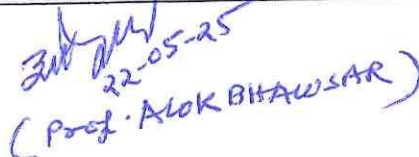 22-05-25
(Prof. ALOK BHAWSAR)